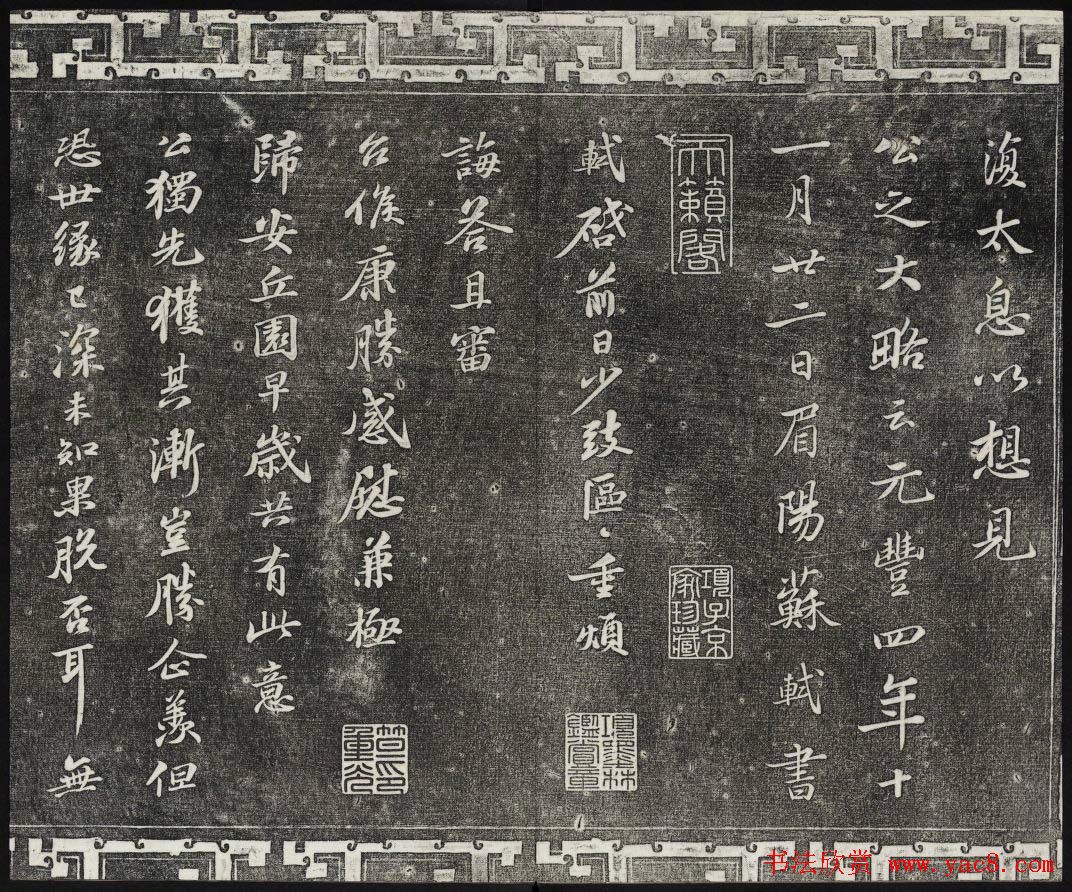 復太息以想見
公之大略云元豐四年十
一月廿二日眉陽蘇軾書
天籟閣
項子京家珍藏
軾啓前日少致區〻重煩
項墨林鑑賞章
誨答且審
台候康勝感慰兼極
歸安丘園早歲共有此意
公獨先獲其漸豈勝企羨但
恐世緣已深未知果脫否耳無
书法欣赏 www.yac8.com